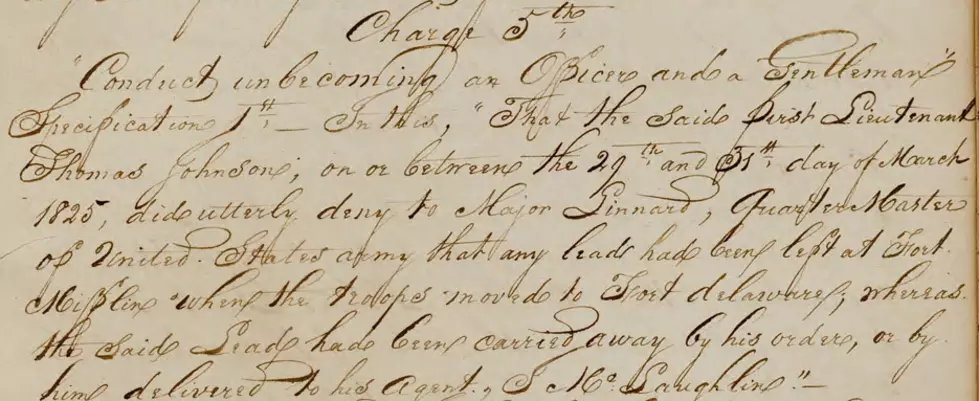 Charge 5th
"Conduct unbecoming an Officer and a Gentleman"
Specification 1st — In this, "That the said first Lieutenant
Thomas Johnson, on or between the 29th and 31st day of March
1825, did utterly deny to Major Linnard, Quarter Master
of United States army that any lead had been left at Fort
Mifflin when the troops moved to Fort delaware, whereas
the said Lead had been carried away by his order, or by
him delivered to his Agent, J Mc Laughlin." —